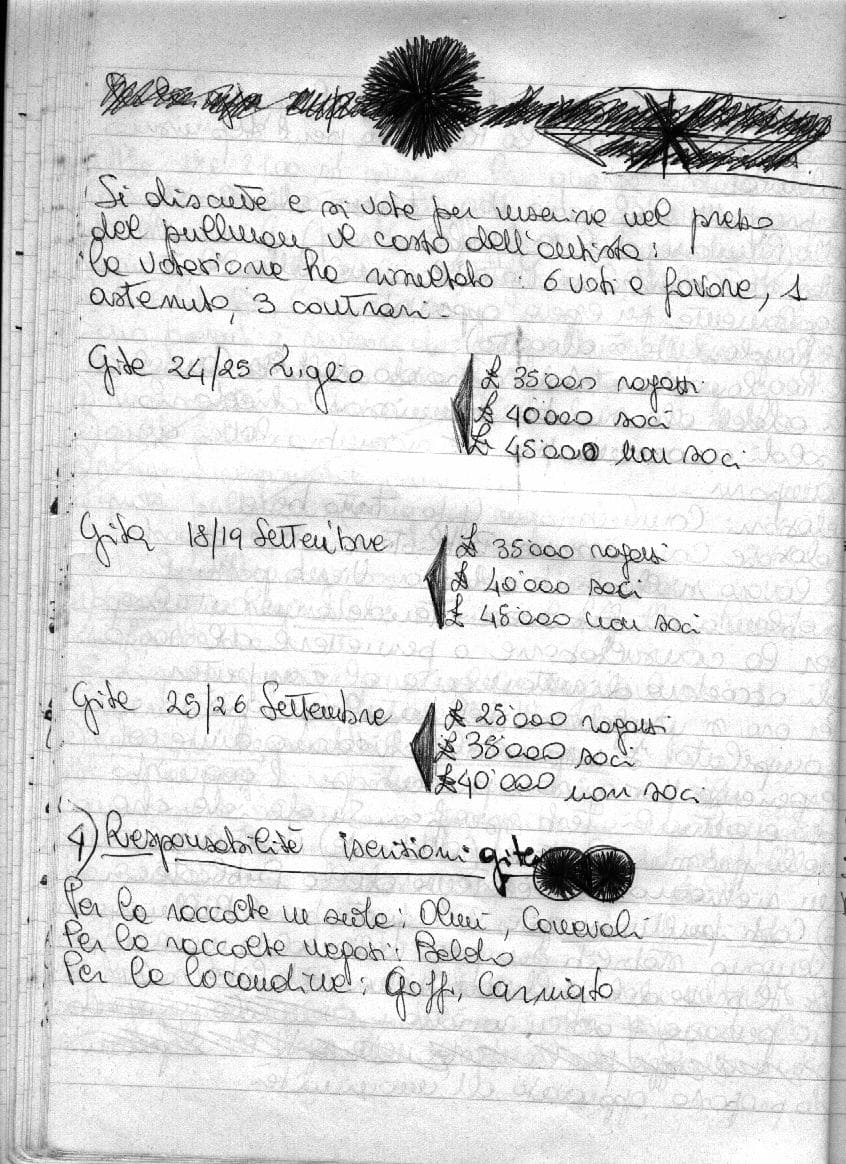 Si discute e si vota per inserire nel prezzo
del pullman il costo dell'autista:
la votazione ha risultato 6 voti a favore, 1
astenuto, 3 contrari.
Gita 24/25 Luglio
£ 35'000 ragazzi
£ 40'000 soci
£ 45'000 non soci
Gita 18/19 Settembre
£ 35'000 ragazzi
£ 40'000 soci
£ 45'000 non soci
Gita 25/26 Settembre
£ 25'000 ragazzi
£ 35'000 soci
£ 40'000 non soci
4) Responsabilità iscrizioni gite
Per la raccolta in sede: Olmi, Canevali
Per la raccolta negozi: Baldo
Per le locandine: Goffi, Carniato